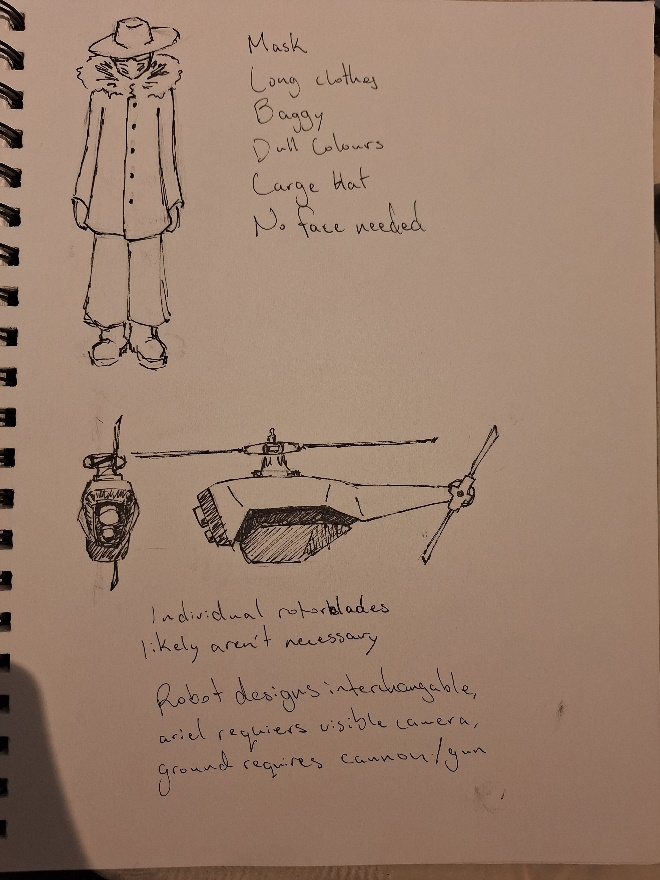 Mask
Long clothes
Baggy
Dull Colours
Large Hat
No face needed
Individual rotorblades
likely aren't necessary
Robot designs interchangable,
ariel requiers visible camera,
ground requires cannon/gun